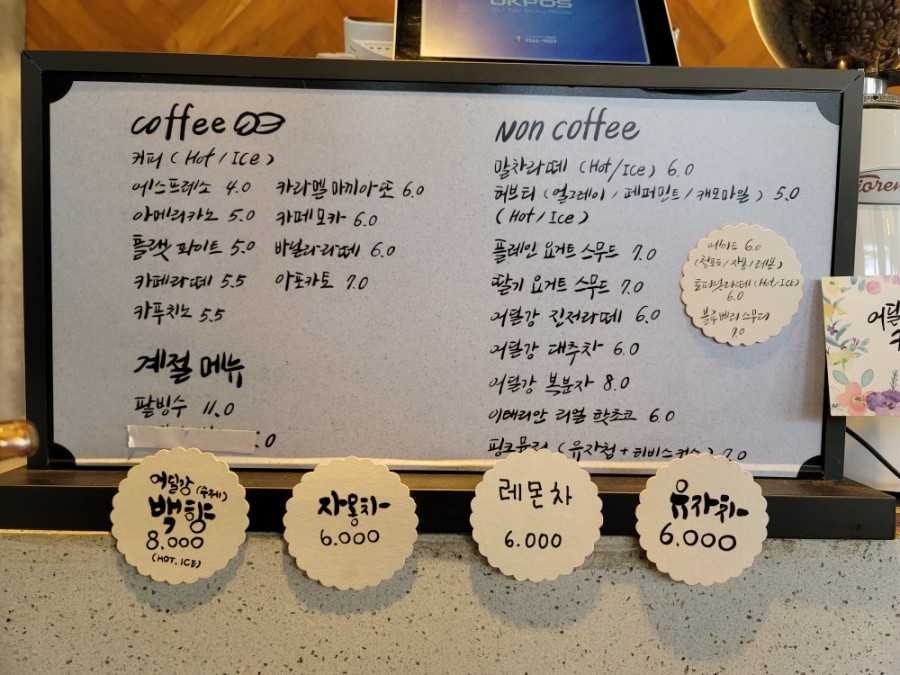 OKPOS
coffee
커피 (Hot / ICE)
에스프레소 4.0
아메리카노 5.0
플랫 화이트 5.0
카페라떼 5.5
카푸치노 5.5
카라멜 마끼아또 6.0
카페모카 6.0
바닐라라떼 6.0
아포카토 7.0
계절 메뉴
팥빙수 11.0
.0
Non coffee
말차라떼 (Hot/ICE) 6.0
허브티 (얼그레이 / 페퍼민트 / 캐모마일) 5.0
(Hot / ICE)
플레인 요거트 스무드 7.0
딸기 요거트 스무드 7.0
어달강 진저라떼 6.0
어달강 대추차 6.0
어달강 복분자 8.0
이태리안 리얼 핫초코 6.0
핑크뮬리 (유자청 + 히비스커스) 7.0
에이드 6.0
(청포도/자몽/레몬)
토피넛라떼 (Hot/ICE)
6.0
블루베리스무디
7.0
어달강 (수제)
백향
8.000
(HOT, ICE)
자몽차
6.000
레몬차
6.000
유자차
6.000